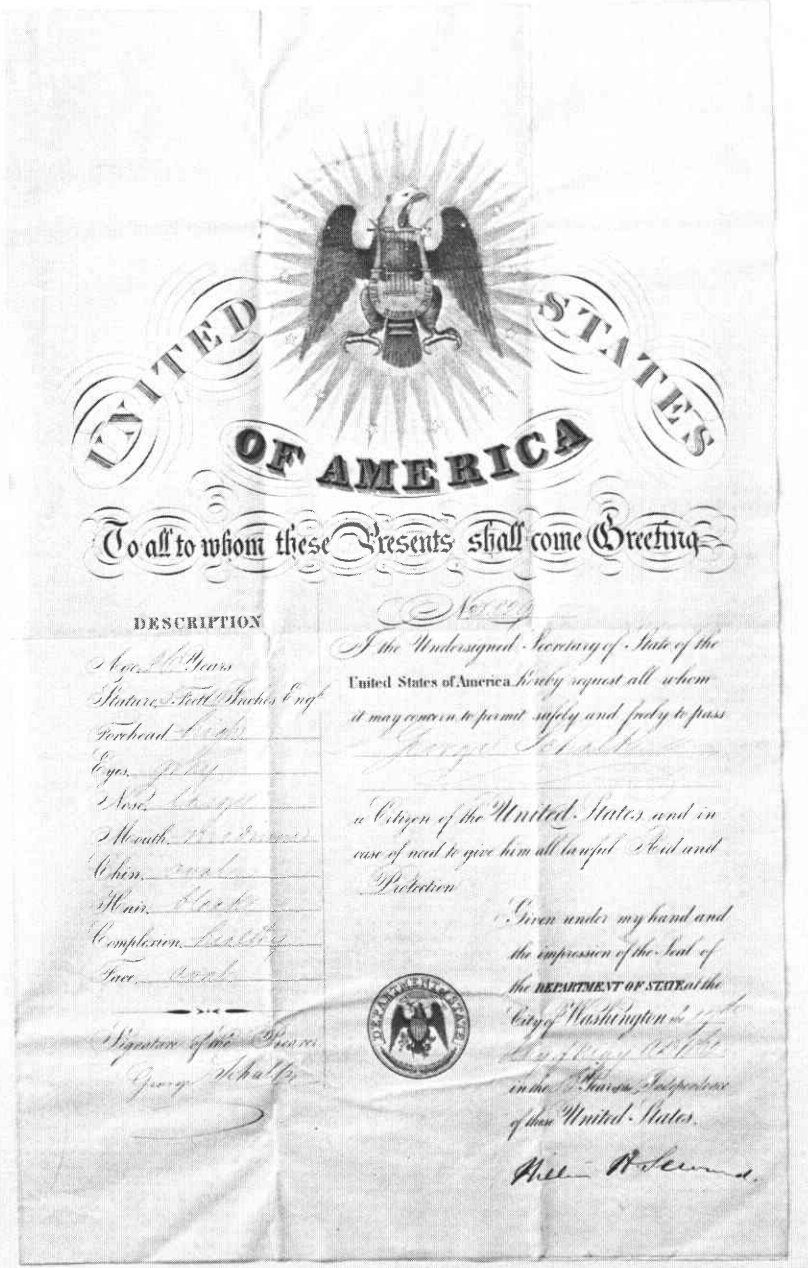 UNITED STATES
OF AMERICA
To all to whom these Presents shall come Greeting
DESCRIPTION
Age, Years
Stature, Feet Inches Engl
Forehead high
Eyes, grey
Nose, large
Mouth
Chin, oval
Hair, black
Complexion, healthy
Face, oval
Signature of the Bearer
George Schalk
No.
I the Undersigned Secretary of State of the
United States of America hereby request all whom
it may concern to permit safely and freely to pass
George
a Citizen of the United States, and in
case of need to give him all lawful Aid and
Protection
Given under my hand and
the impression of the Seal of
the DEPARTMENT OF STATE at the
City of Washington the
in the Year of the Independence
of these United States.
William H Seward.
DEPARTMENT OF STATE